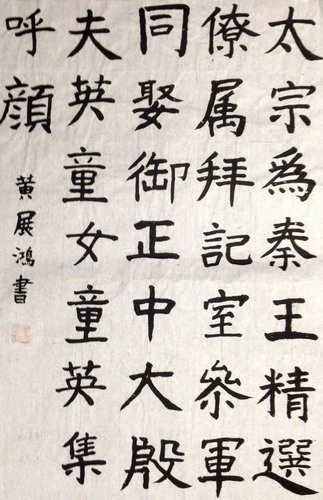 太宗爲秦王精選
僚属拜記室叅軍
同娶御正中大殷
夫英童女童英集
呼顔
黄展鴻書